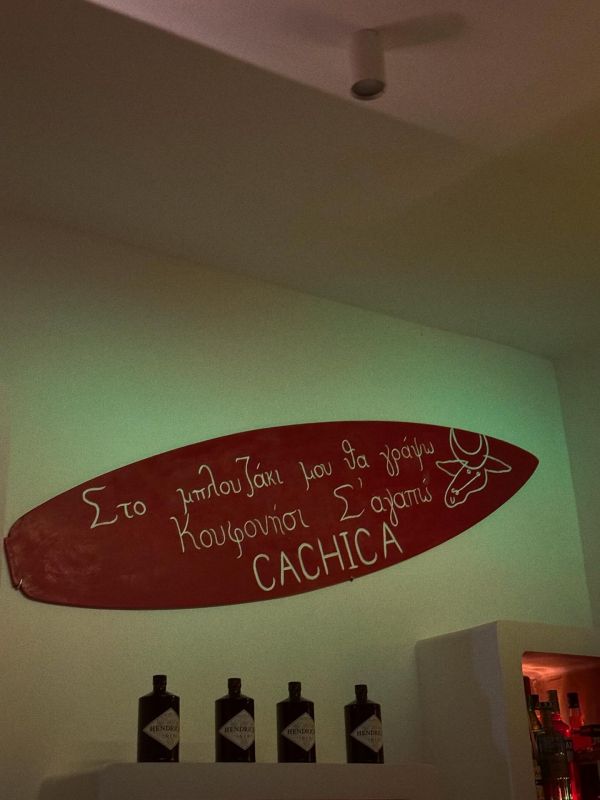 Στο μπλουζάκι μου θα γράψω
Κουφονήσι Σ'αγαπώ
CACHICA
HENDRICK'S
HENDRICK'S
HENDRICK'S
HENDRICK'S